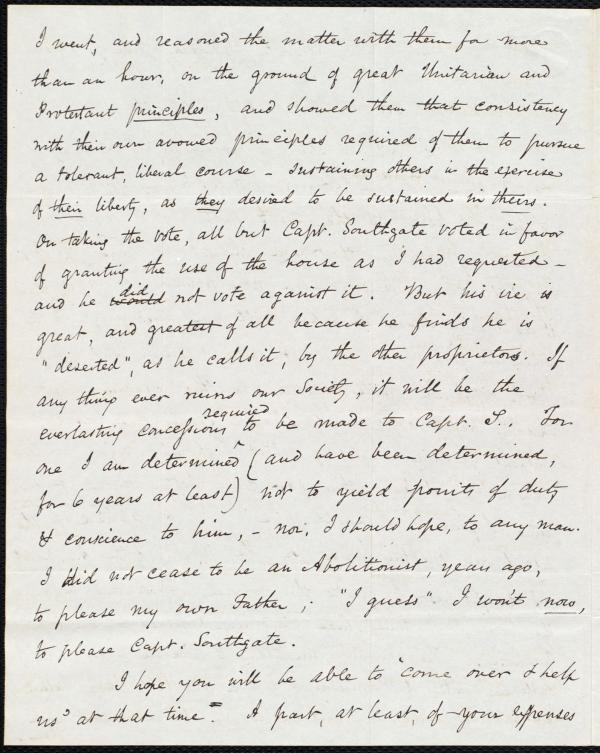 I went, and reasoned the matter with them for more
than an hour, on the ground of great Unitarian and
Protestant principles, and showed them that consistency
with their own avowed principles required of them to pursue
a tolerant, liberal course - sustaining others in the exercise
of their liberty, as they desired to be sustained in theirs.
On taking the vote, all but Capt. Southgate voted in favor
of granting the use of the house as I had requested -
and he would did not vote against it. But his ire is
great, and greatest of all because he finds he is
"deserted", as he calls it, by the other proprietors. If
any thing ever ruins our Society, it will be the
everlasting concessions required to be made to Capt. S.. For
one I am determined (and have been determined,
for 6 years at least) not to yield points of duty
& conscience to him, - nor, I should hope, to any man.
I did not cease to be an Abolitionist, years ago,
to please my own Father; "I guess" I won't now,
to please Capt. Southgate.
I hope you will be able to "come over & help
us" at that time. A part, at least, of your expenses